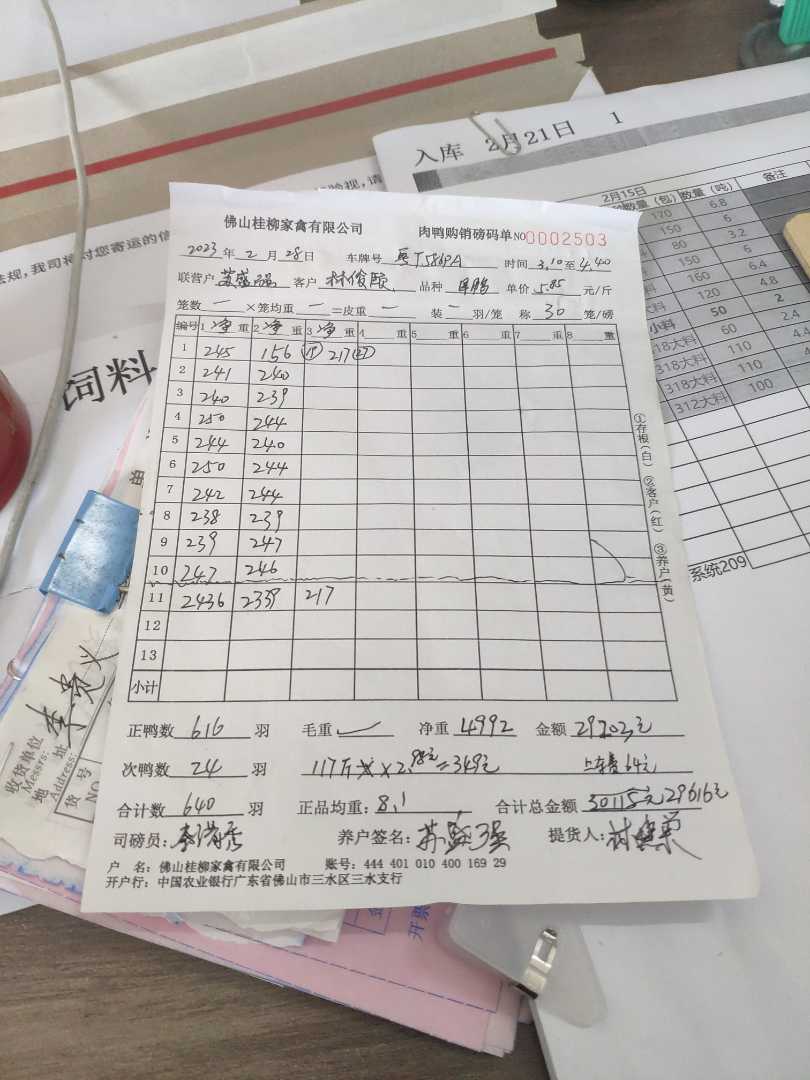 入库 2月21日 1
2月15日
数量(包) 数量(吨) 备注
170 6.8
150 6
80 3.2
150 6
160 6.4
120 4.8
小料 50 2
318大料 60 2.4
318大料 110 4.4
318大料 110
312大料 100
系统209
饲料
佛山桂柳家禽有限公司 肉鸭购销磅码单 NO 0002503
2023年 2月 28日 车牌号 时间 3,10至4,40
联营户 苏盛强 客户 林俊颐 品种 单价 5.85 元/斤
笼数 一 ×笼均重 一 =皮重 一 装 一 羽/笼 称 30 笼/磅
编号 1 净 重 2 净 重 3 净 重 4 重 5 重 6 重 7 重 8 重
1 245 156 217
2 241 240
3 240 239
4 250 244
5 244 240
6 250 244
7 242 244
8 238 239
9 239 247
10 247 246
11 2436 2339 217
12
13
小计
①存根(白) ②客户(红) ③养户(黄)
正鸭数 616 羽 毛重 净重 4992 金额 29203元
次鸭数 24 羽 117斤 × 2.98元=349元 上车费64元
合计数 640 羽 正品均重: 8.1 合计总金额 30115元 29616元
司磅员: 养户签名: 苏盛强 提货人:
户 名: 佛山桂柳家禽有限公司 账号: 444 401 010 400 169 29
开户行: 中国农业银行广东省佛山市三水区三水支行
收货单位
Messrs:
地 址
Address:
货 号
NO